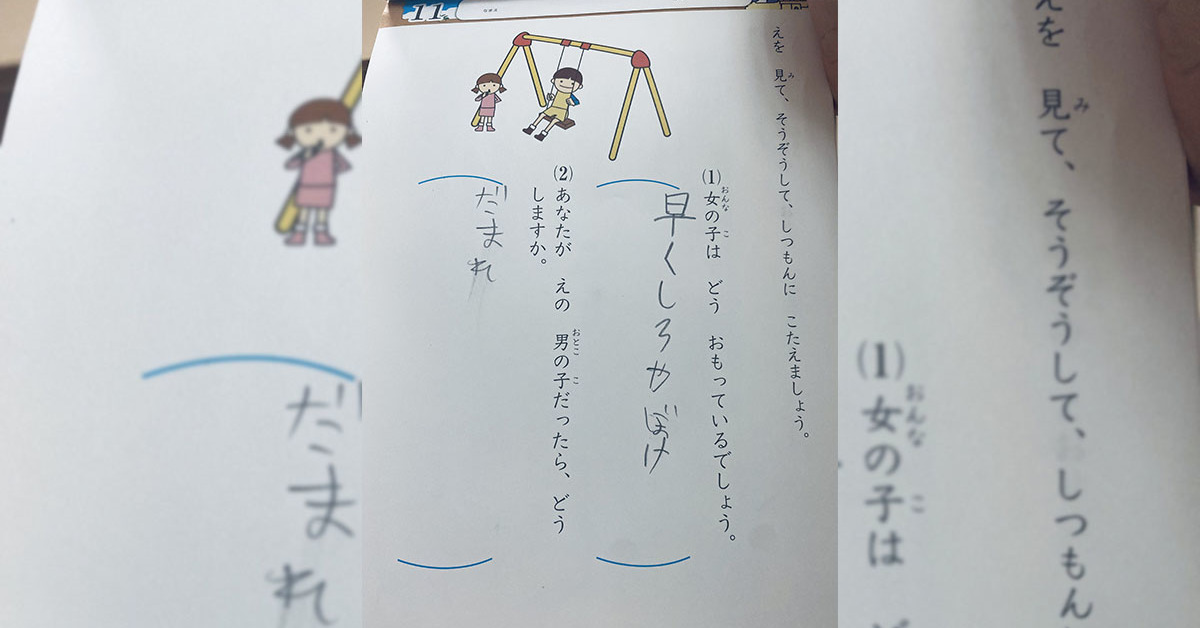 11
えを 見て、そうぞうして、しつもんに こたえましょう。
み
(1)女の子は どう おもっているでしょう。
おんな こ
早くしろやぼけ
(2)あなたが えの 男の子だったら、どう
おとこ こ
しますか。
だまれ
えを 見て、そうぞうして、しつもん
み
(1)女の子は ど
おんな こ
だまれ